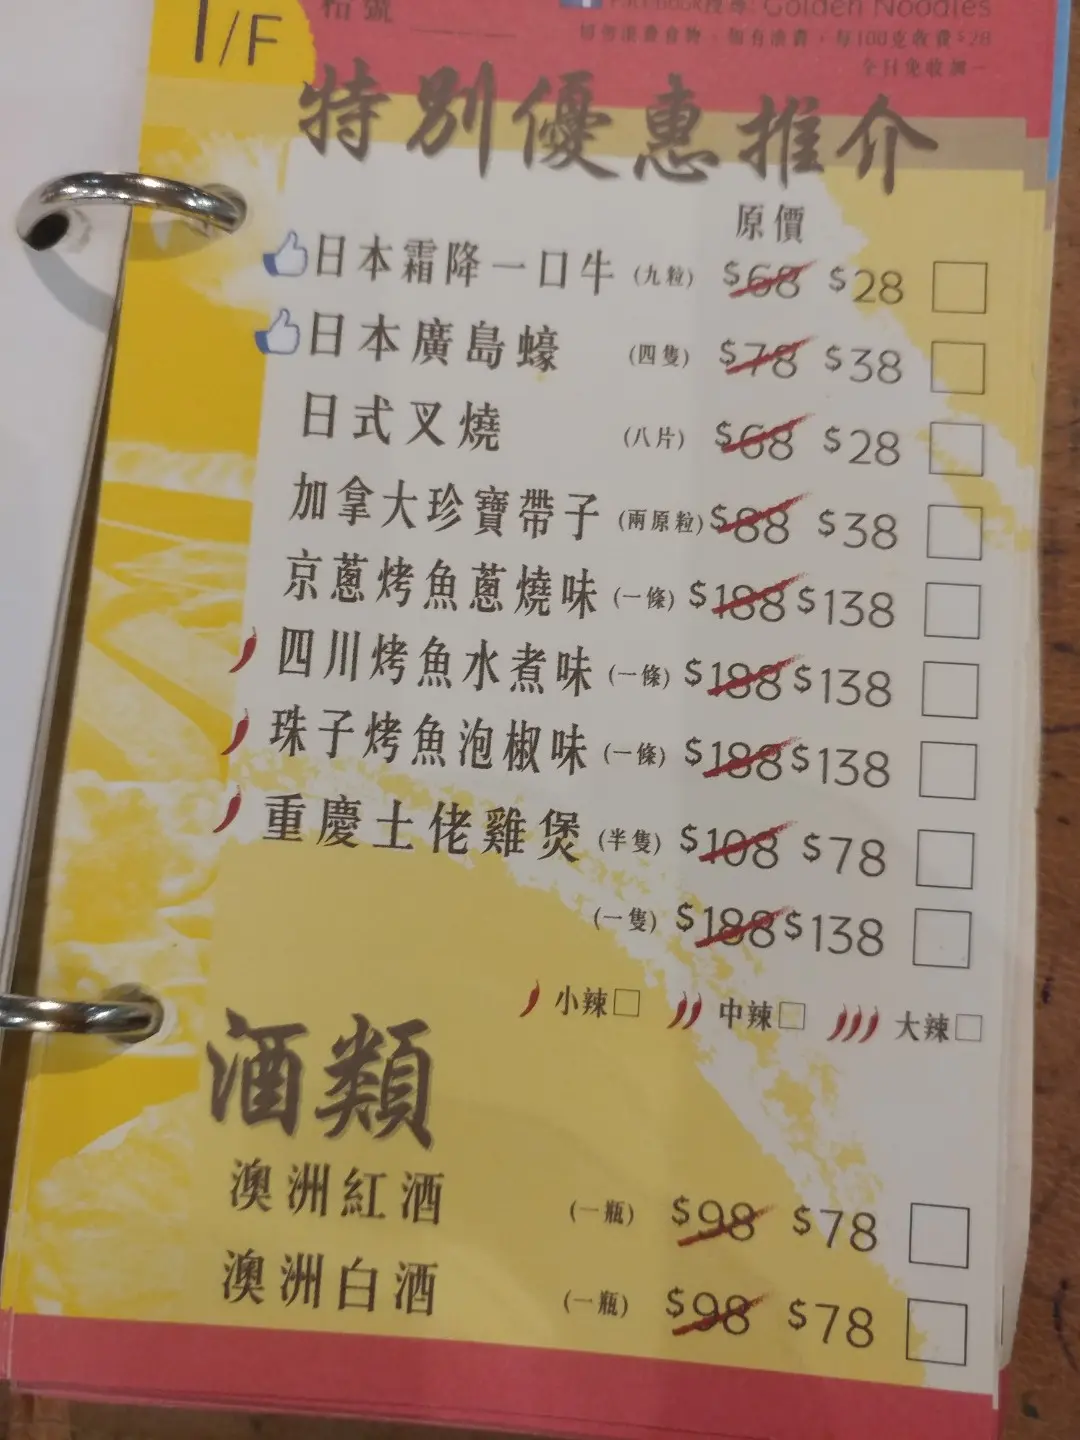 1/F
枱號
Facebook搜尋: Golden Noodles
切勿浪費食物,如有浪費,每100克收費$28
全日免收加一
特別優惠推介
原價
日本霜降一口牛 (九粒) $68 $28
日本廣島蠔 (四隻) $78 $38
日式叉燒 (八片) $68 $28
加拿大珍寶帶子 (兩原粒) $88 $38
京蔥烤魚蔥燒味 (一條) $188 $138
四川烤魚水煮味 (一條) $188 $138
珠子烤魚泡椒味 (一條) $188 $138
重慶土佬雞煲 (半隻) $108 $78
(一隻) $188 $138
小辣 中辣 大辣
酒類
澳洲紅酒 (一瓶) $98 $78
澳洲白酒 (一瓶) $98 $78